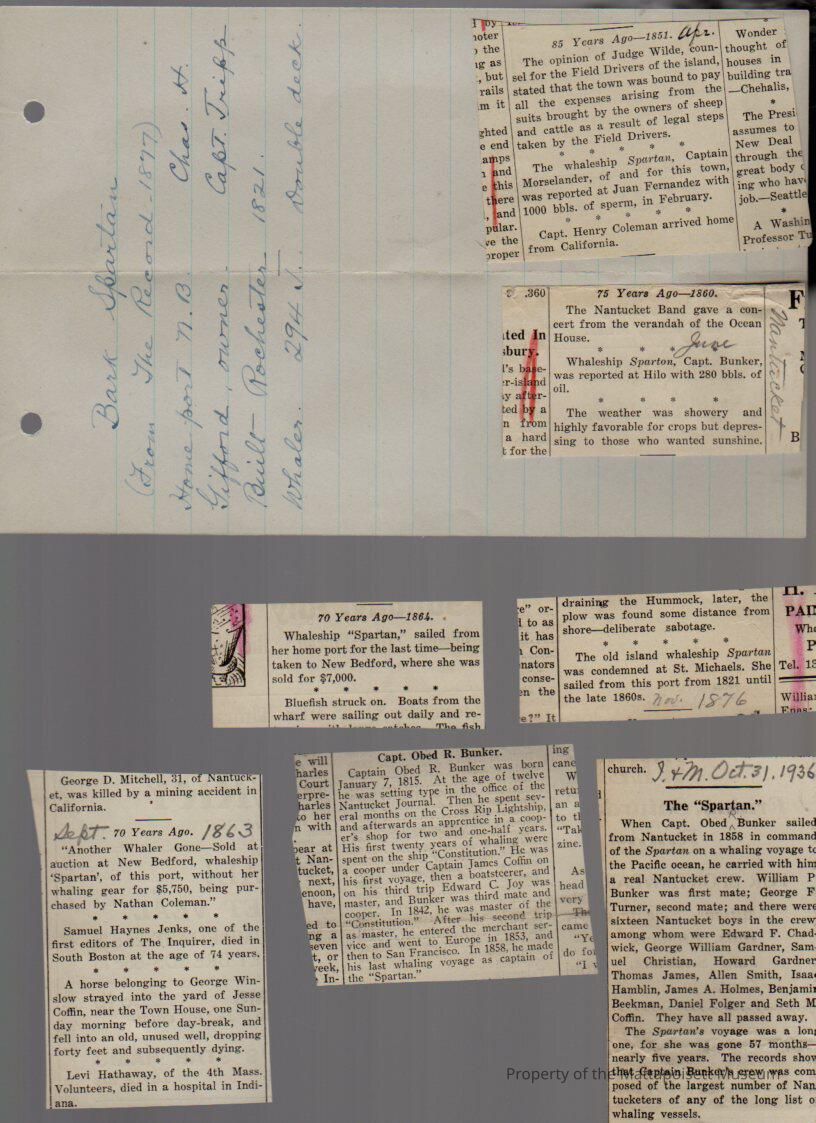 Bark Spartan
(From The Record - 1897)
Home port N.B. Chas. H.
Gifford, owner - Capt. Tripp
Built - Rochester - 1821.
Whaler. 294 T. Double deck.
85 Years Ago—1851. Apr.
The opinion of Judge Wilde, coun-
sel for the Field Drivers of the island,
stated that the town was bound to pay
all the expenses arising from the
suits brought by the owners of sheep
and cattle as a result of legal steps
taken by the Field Drivers.
* * * * *
The whaleship Spartan, Captain
Morselander, of and for this town,
was reported at Juan Fernandez with
1000 bbls. of sperm, in February.
* * * * *
Capt. Henry Coleman arrived home
from California.
Wonder
thought of
houses in
building tra
—Chehalis,
*
The Presi
assumes to
New Deal
through the
great body
ing who hav
job.—Seattle
*
A Washin
Professor Tu
.360
ated In
sbury.
l's base-
er-island
y after-
ted by a
n from
a hard
t for the
75 Years Ago—1860.
The Nantucket Band gave a con-
cert from the verandah of the Ocean
House.
* * * June
Whaleship Sparton, Capt. Bunker,
was reported at Hilo with 280 bbls. of
oil.
* * * *
The weather was showery and
highly favorable for crops but depres-
sing to those who wanted sunshine.
Nantucket
70 Years Ago—1864.
Whaleship "Spartan," sailed from
her home port for the last time—being
taken to New Bedford, where she was
sold for $7,000.
* * * * *
Bluefish struck on. Boats from the
wharf were sailing out daily and re-
draining the Hummock, later, the
plow was found some distance from
shore—deliberate sabotage.
* * * * *
The old island whaleship Spartan
was condemned at St. Michaels. She
sailed from this port from 1821 until
the late 1860s. Nov. 1876
H.
PAI
Who
P
Tel. 13
Willia
George D. Mitchell, 31, of Nantuck-
et, was killed by a mining accident in
California.
Sept. 70 Years Ago. 1863
"Another Whaler Gone—Sold at
auction at New Bedford, whaleship
'Spartan', of this port, without her
whaling gear for $5,750, being pur-
chased by Nathan Coleman."
* * * * *
Samuel Haynes Jenks, one of the
first editors of The Inquirer, died in
South Boston at the age of 74 years.
* * * * *
A horse belonging to George Win-
slow strayed into the yard of Jesse
Coffin, near the Town House, one Sun-
day morning before day-break, and
fell into an old, unused well, dropping
forty feet and subsequently dying.
* * * * *
Levi Hathaway, of the 4th Mass.
Volunteers, died in a hospital in Indi-
ana.
Capt. Obed R. Bunker.
Captain Obed R. Bunker was born
January 7, 1815. At the age of twelve
he was setting type in the office of the
Nantucket Journal. Then he spent sev-
eral months on the Cross Rip Lightship,
and afterwards an apprentice in a coop-
er's shop for two and one-half years.
His first twenty years of whaling were
spent on the ship "Constitution." He was
a cooper under Captain James Coffin on
his first voyage, then a boatsteerer, and
on his third trip Edward C. Joy was
master, and Bunker was third mate and
cooper. In 1842, he was master of the
"Constitution." After his second trip
as master, he entered the merchant ser-
vice and went to Europe in 1853, and
then to San Francisco. In 1858, he made
his last whaling voyage as captain of
the "Spartan."
church. I. & M. Oct. 31, 1936
The "Spartan."
When Capt. Obed R Bunker sailed
from Nantucket in 1858 in command
of the Spartan on a whaling voyage to
the Pacific ocean, he carried with him
a real Nantucket crew. William P
Bunker was first mate; George F
Turner, second mate; and there were
sixteen Nantucket boys in the crew
among whom were Edward F. Chad-
wick, George William Gardner, Sam-
uel Christian, Howard Gardner
Thomas James, Allen Smith, Isaa
Hamblin, James A. Holmes, Benjamin
Beekman, Daniel Folger and Seth M
Coffin. They have all passed away.
The Spartan's voyage was a long
one, for she was gone 57 months—
nearly five years. The records show
that Captain Bunker's crew was com
posed of the largest number of Nan
tucketers of any of the long list o
whaling vessels.
Property of the Mattapoisett Museum